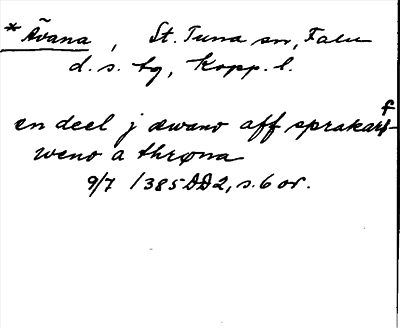 *Åvana, St. Tuna sn, Falu
d. s. tg, Kopp. l.
en deel j æwano aff sprakarf-
weno a thrøna
9/7 1385 DD2, s. 6 or.